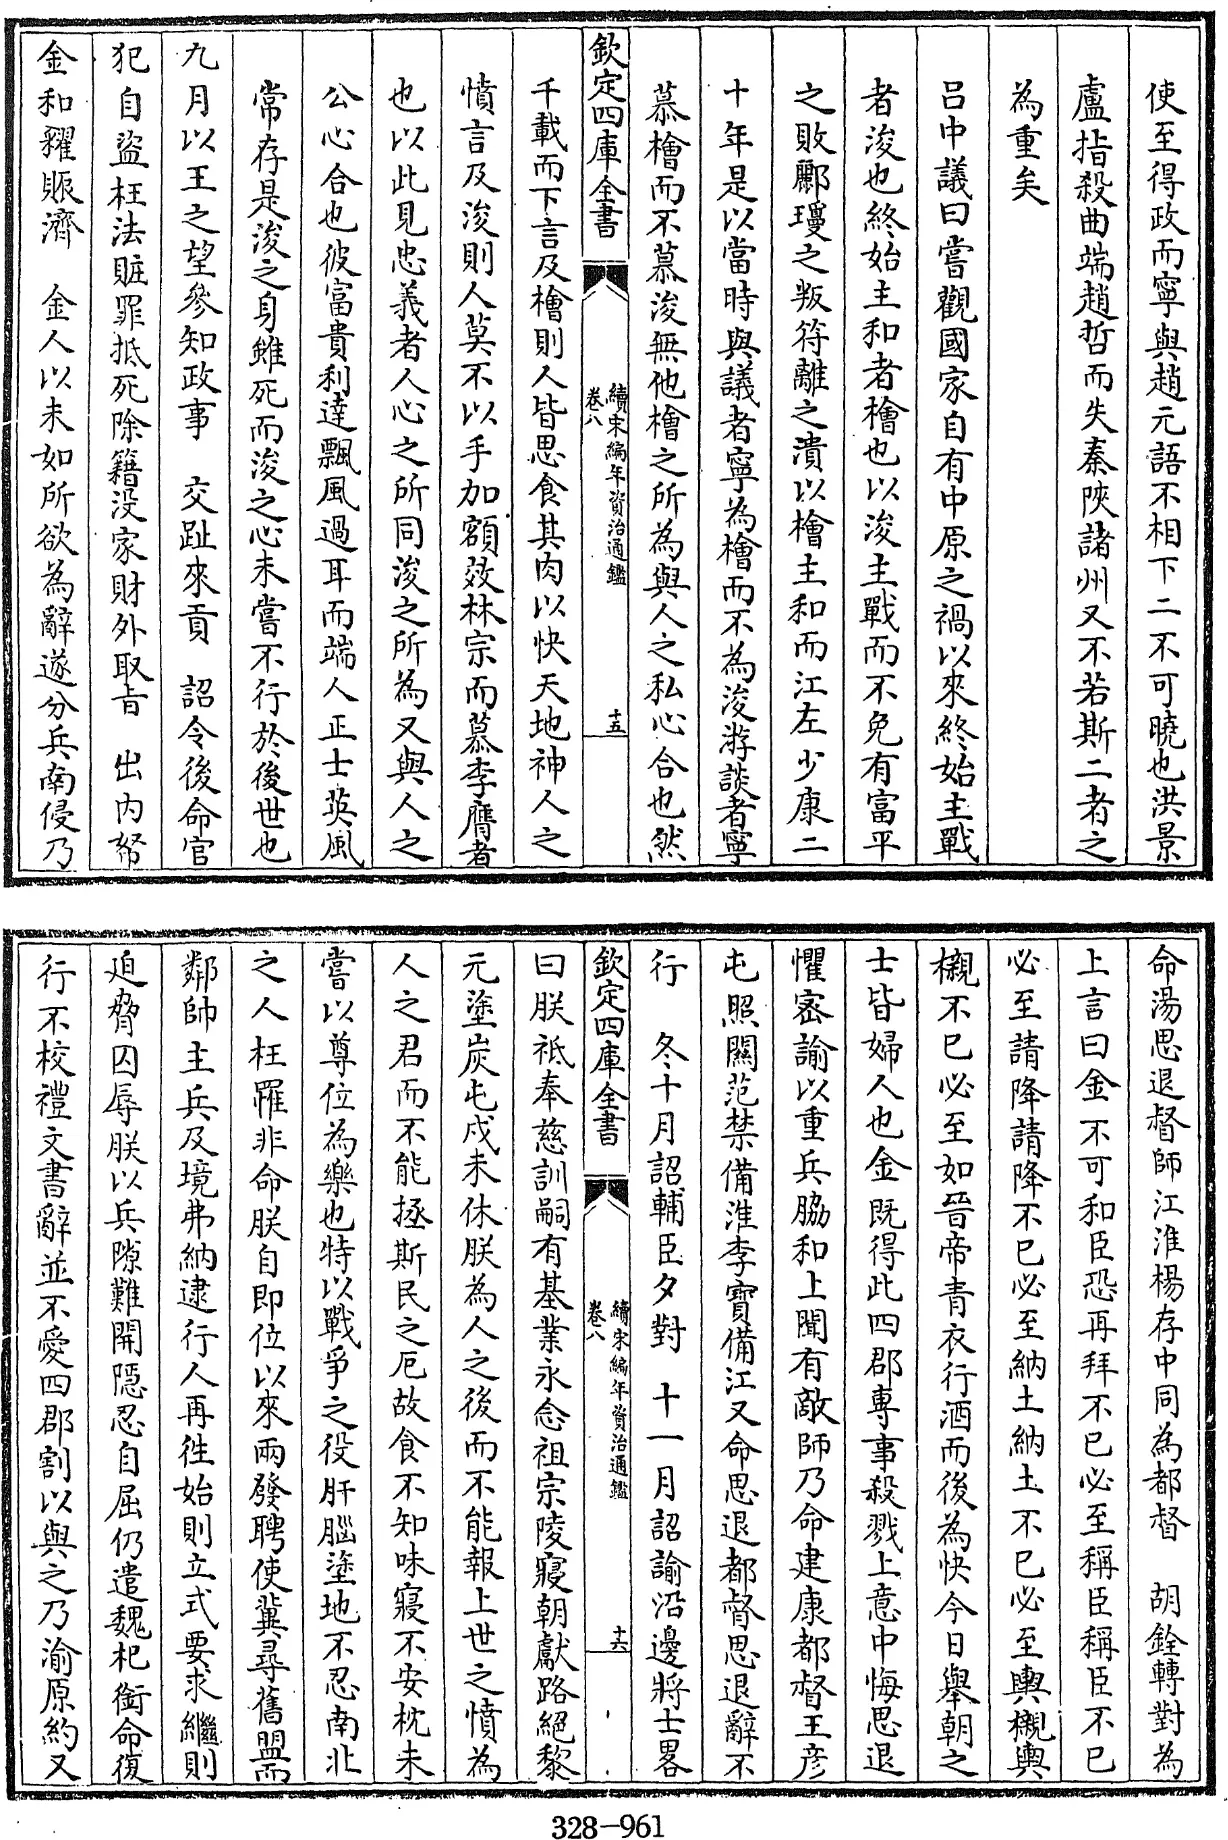 使至得政而寧與趙元語不相下二不可曉也洪景
盧指殺曲端趙哲而失秦陜諸州又不若斯二者之
為重矣
呂中議曰嘗觀國家自有中原之禍以來終始主戰
者浚也終始主和者檜也以浚主戰而不免有富平
之敗酈瓊之叛符離之潰以檜主和而江左少康二
十年是以當時與議者寧為檜而不為浚游談者寧
慕檜而不慕浚無他檜之所為與人之私心合也然
欽定四庫全書
續宋編年資治通鑑
卷八
十五
千載而下言及檜則人皆思食其肉以快天地神人之
憤言及浚則人莫不以手加額效林宗而慕李膺者
也以此見忠義者人心之所同浚之所為又與人之
公心合也彼富貴利達飄風過耳而端人正士英風
常存是浚之身雖死而浚之心未嘗不行於後世也
九月以王之望參知政事　交趾來貢　詔令後命官
犯自盜枉法贓罪抵死除籍沒家財外取旨　出內帑
金和糴賑濟　金人以未如所欲為辭遂分兵南侵乃
命湯思退督師江淮楊存中同為都督　胡銓轉對為
上言曰金不可和臣恐再拜不已必至稱臣稱臣不已
必至請降請降不已必至納土納土不已必至輿櫬輿
櫬不已必至如晉帝青衣行酒而後為快今日舉朝之
士皆婦人也金既得此四郡專事殺戮上意中悔思退
懼密諭以重兵脇和上聞有敵師乃命建康都督王彥
屯照關范禁備淮李寳備江又命思退都督思退辭不
行　冬十月詔輔臣夕對　十一月詔諭沿邊將士畧
欽定四庫全書
續宋編年資治通鑑
卷八
十六
曰朕祇奉慈訓嗣有基業永念祖宗陵寢朝獻路絕黎
元塗炭屯戍未休朕為人之後而不能報上世之憤為
人之君而不能拯斯民之厄故食不知味寢不安枕未
嘗以尊位為樂也特以戰爭之役肝腦塗地不忍南北
之人枉罹非命朕自即位以來兩發聘使冀尋舊盟而
鄰帥主兵及境弗納逮行人再徃始則立式要求繼則
迫脅囚辱朕以兵隙難開隱忍自屈仍遣魏杞銜命復
行不校禮文書辭並不愛四郡割以與之乃渝原約又
328-961